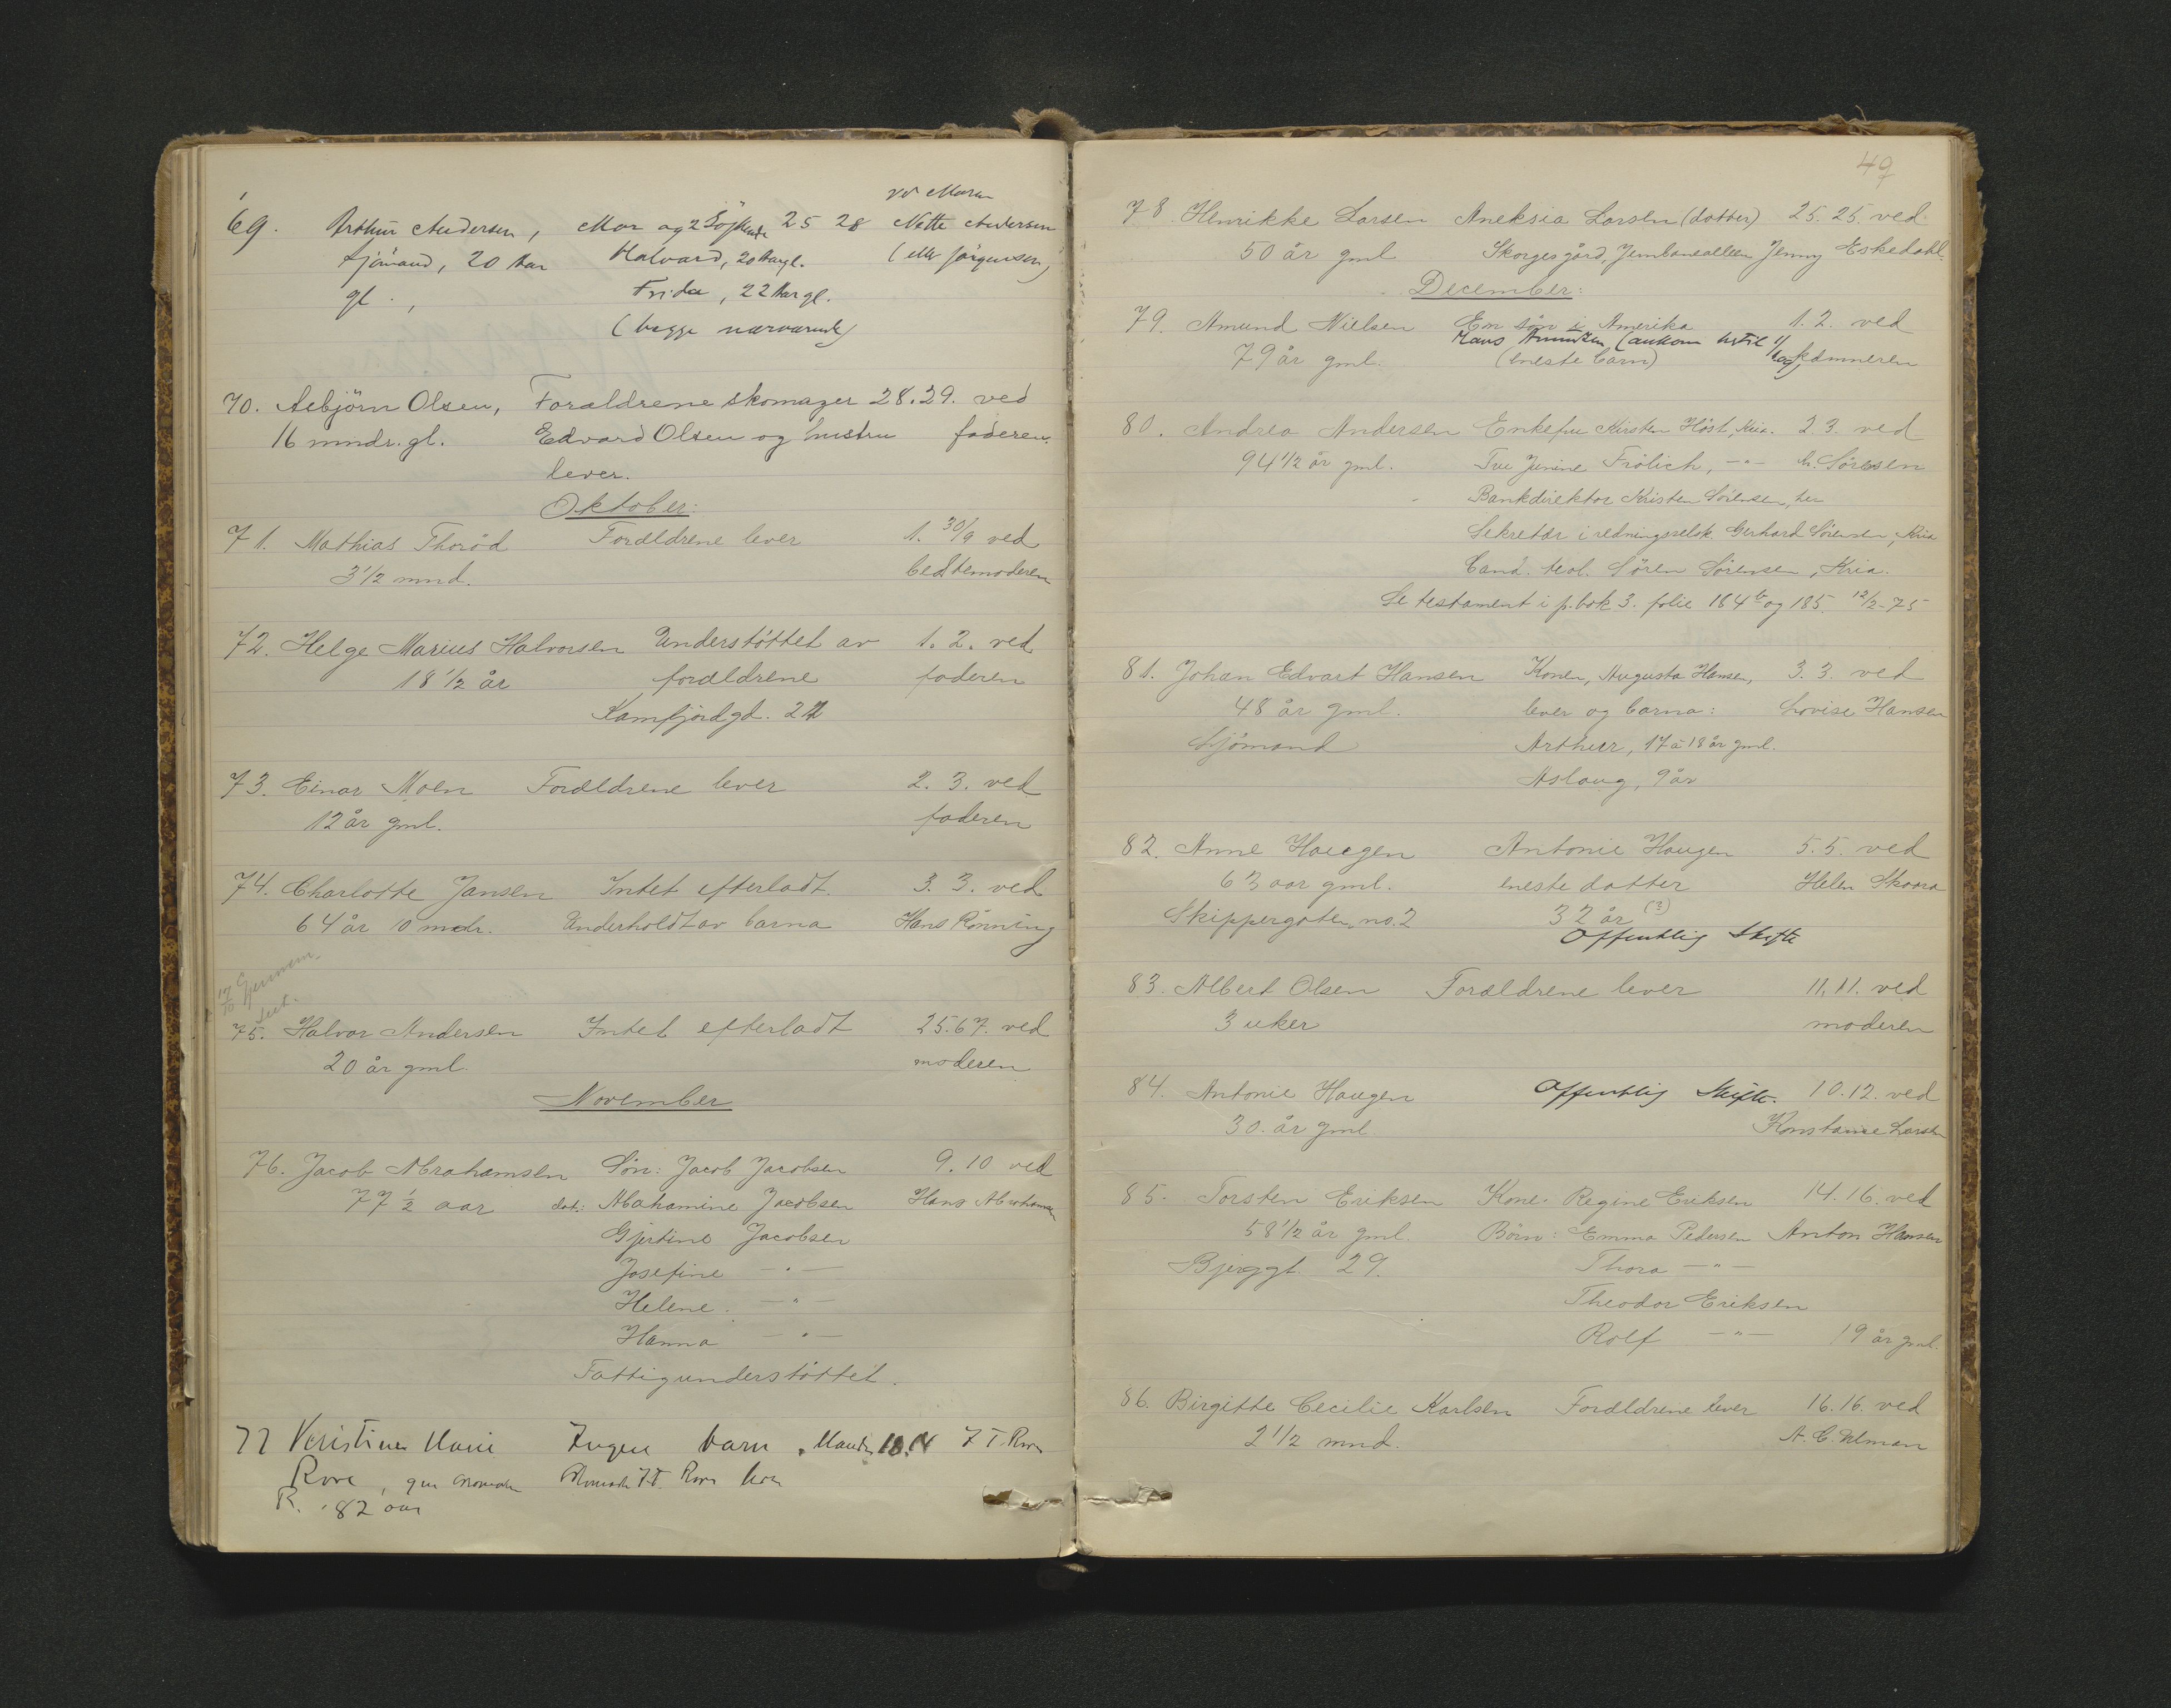 69. Arthur Andersen, Mor og 2 Søskende 25 28 ved Moren
sjömand, 20 Aar Halvard, 20 Aar gl. Nette Andersen
gl. , Frida, 22 Aar gl. (eller Jörgensen)
(begge nærværende)
70. Asbjörn Olsen, Forældrene skomager 28. 29. ved
16 mndr. gl. Edvard Olsen og hustru faderen.
lever.
Oktober:
71. Mathias Thorød Forældrene lever 1. 30/9 ved
3 1/2 mnd. bedstemoderen
72. Helge Marius Halvorsen Understöttet av 1. 2. ved
18 1/2 år forældrene faderen
Kamfjordgd.
73. Einar Moen Forældrene lever 2. 3. ved
12 år gml. faderen
74. Charlotte Jansen Intet efterladt. 3. 3. ved
64 år 10 mndr. Underholdt av barna Hans Rønning
17/10 Gjennem
75. Halvor Andersen Intet efterladt 25. 67. ved
20 år gml. moderen
November
76. Jacob Abrahamsen Søn: Jacob Jacobsen 9. 10 ved
77 1/2 aar dat: Abahamine Jacobsen Hans Abrahamsen
Gjertine Jacobsen
Josefine — " —
Helene. — " —
Hanna — " —
Fattigunderstöttet.
77 Kristine Marie Ingen barn. Manden 10. 7 T. Rove
Rove, T. Rove
R. 82 aar
49
78. Henrikke Larsen Aneksia Larsen (datter) 25. 25. ved
50 år gml Skorgesgård, Jernbanealleen Jenny Eskedahl.
December:
79. Amund Nielsen En søn i Amerika 1. 2. ved
Hans Amundsen (ankom hertil
79 år gml. (eneste barn) kæmneren
80. Andrea Andersen Enkefru Kirsten Høst, Kria. 2. 3. ved
94 1/2 år gml. Frue Jenine Frölich, — " — Sørensen
Bankdirektør Kristen Sørensen, her
Sekretær i redningsselsk. Gerhard Sørensen, Kria
Cand. teol. Sören Sørensen, Kria.
Se testament i p.bok 3. folie 184b og 185. 12/2-75
81. Johan Edvart Hansen Konen, Augusta Hansen, 3. 3. ved
48 år gml. lever og barna: Lovise Hansen
Sjømand Arthur, 17 à 18 år gml.
Aslaug, 9 år
82. Anne Haugen Antonie Haugen 5. 5. ved
63 aar gml. eneste datter Helen Skaara
Skippergaten no. 2 32 år (?)
Offentlig Skifte
83. Albert Olsen Forældrene lever 11. 11. ved
3 uker moderen
84. Antonie Haugen Offentlig Skifte. 10. 12. ved
30. år gml Konstanse Larsen
85. Torsten Eriksen Kone: Regine Eriksen 14. 16. ved
58 1/2 år gml. Börn: Emma Pedersen Anton Hansen
Bjerggt. 29. Thora — " —
Theodor Eriksen
Rolf — " — 19 år gml.
86. Birgitte Cecilie Karlsen Forældrene lever 16. 16. ved
2 1/2 mnd. A. C. Ulman